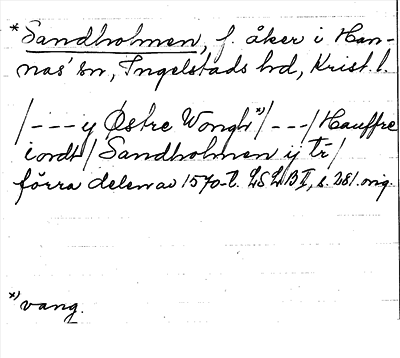 * Sandholmen, f. åker i Han-
nas' sn, Ingelstads hd, Krist. l.
/---y Østre Wongh *)/---/Hauffre
iordt/Sandholmen ij tr/
förra delen av 1570-t. LSLB II, s. 281 orig.
*) vang.